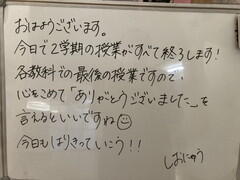 おはようございます。
今日で2学期の授業がすべて終了します!
各教科での最後の授業ですので、
心をこめて「ありがとうございました。」を
言えるといいですね☺
今日もはりきっていこう!!
しおにゅう